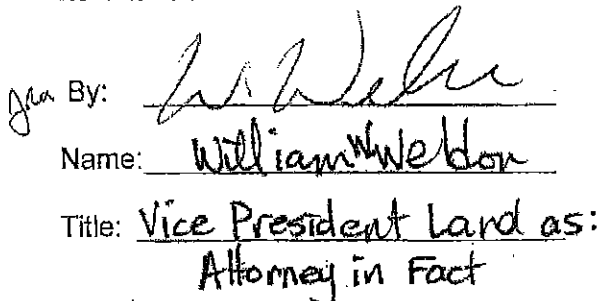 By: W Weldon
Name: William W Weldon
Title: Vice President Land as:
Attorney in Fact